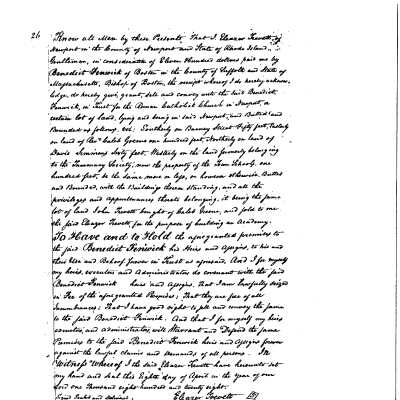 26
Know all Men by these Presents That I Eleazer Trevett of
Newport in the County of Newport and State of Rhode Island
Gentleman, in consideration of Eleven Hundred dollars paid me by
Benedict Fenwick of Boston in the County of Suffolk and State of
Massachusetts, Bishop of Boston, the receipt whereof I do hereby acknow-
ledge, do hereby give, grant, sell and convey unto the said Benedict
Fenwick, in Trust for the Roman Catholick Church in Newport, a
certain lot of land, lying and being in said Newport, and Butted and
Bounded as follows, viz: Southerly on Barney Street fifty feet, Easterly
on land of Caleb Greene one hundred feet, Northerly on land of
Davis fifty feet, Westerly on the land formerly belonging
to the Society, now the property of the School, one
hundred feet, be the same more or less, or however otherwise Butted
and Bounded, with the Buildings thereon standing, and all the
priviliges and appurtenances thereto belonging, it being the same
lot of land John Trevett bought of Caleb Greene, and sold to me
the said Eleazer Trevett, for the purpose of building an Academy.
To Have and to Hold the aforegranted premises to
the said Benedict Fenwick his Heirs and Assigns, to his and
their Use and Behoof forever in Trust as aforesaid. And I for myself
my heirs, executors and Administrators do covenant with the said
Benedict Fenwick heirs and Assigns, that I am lawfully seized
in Fee of the aforegranted Premises; That they are free of all
Incumbrances; That I have good right to sell and convey the same
to the said Benedict Fenwick. And that I for myself my heirs
executors, and administrators, will Warrant and Defend the same
Premises to the said Benedict Fenwick heirs and Assigns forever
against the lawful claims and demands of all persons. In
Witness whereof I the said Eleazer Trevett have hereunto set
my hand and seal this Eighth day of April in the year of our
Lord one thousand eight hundred and twenty eight.
Signed Sealed and delivered Eleazer Trevett